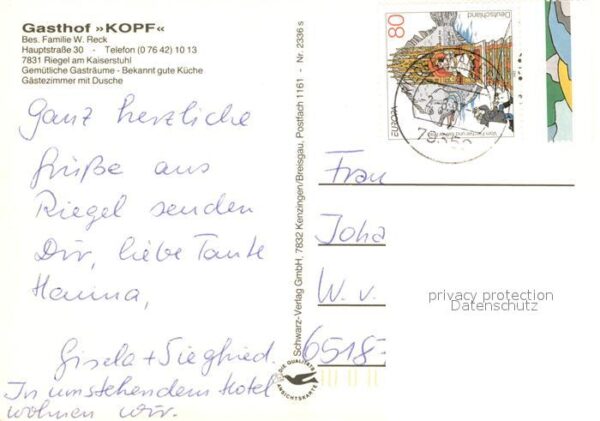 Gasthof »KOPF«
Bes. Familie W. Reck
Hauptstraße 30 - Telefon (0 76 42) 10 13
7831 Riegel am Kaiserstuhl
Gemütliche Gasträume - Bekannt gute Küche
Gästezimmer mit Dusche
Ganz herzliche
Grüße aus
Riegel senden
Dir, liebe Tante
Hanna,
Gisela + Siegfried.
In umstehendem Hotel
wohnen wir.
Schwarz-Verlag GmbH, 7832 Kenzingen/Breisgau, Postfach 1161 - Nr. 2336 s
DIE QUALITÄTS
ANSICHTSKARTE
80
Deutschland
EUROPA
Frau
Joha
W. v.
6518
privacy protection
Datenschutz